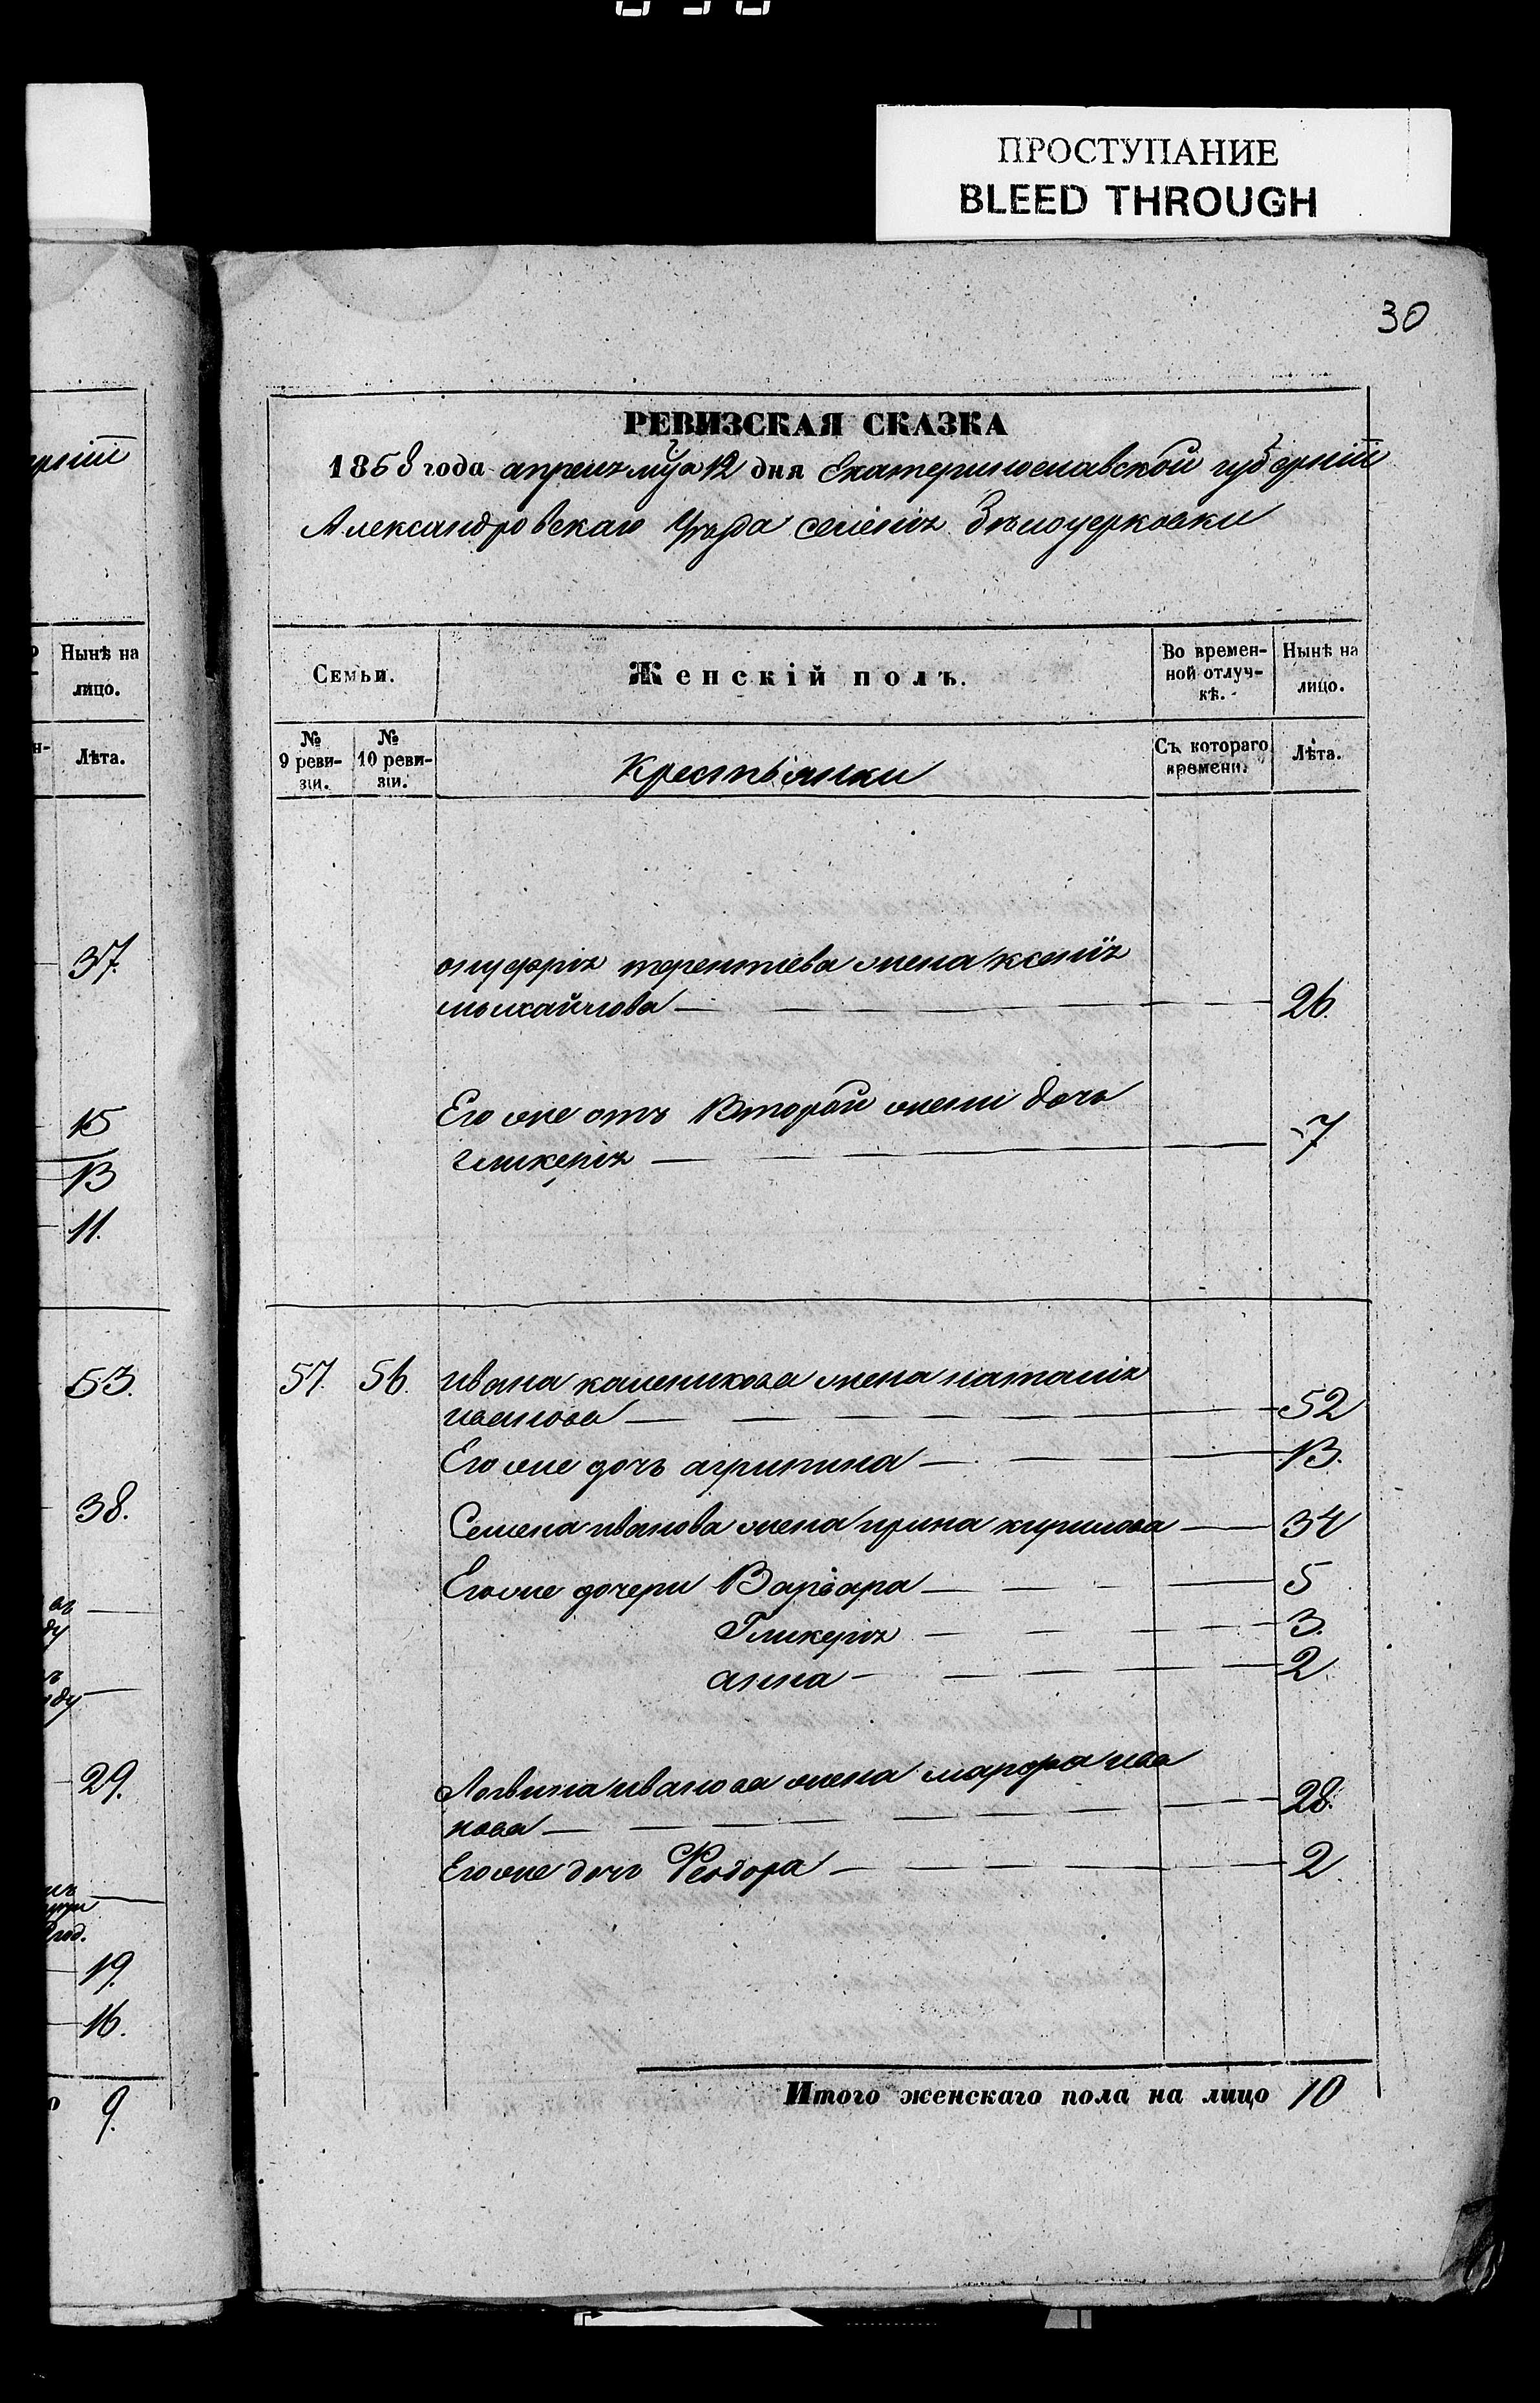 ПРОСТУПАНИЕ
BLEED THROUGH
30
РЕВИЗСКАЯ СКАЗКА
1858 года апреля мца 12 дня Екатеринославской губерніи
Александровскаго уѣзда селенія Бѣлоцерковки
Нынѣ на
лицо.
Лѣта.
37.
15
13
11.
53.
38.
29.
19.
16.
9.
Семьи.
Женскій полъ.
Во времен-
ной отлуч-
кѣ.
Нынѣ на
лицо.
№
9 реви-
зіи.
№
10 реви-
зіи.
Крестьянки
Съ котораго
времени.
Лѣта.
онуфрія терентіева жена ксенія
михайлова — 26.
Его же отъ Второй жены дочь
гликерія — 7
57. 56. ивана каленикова жена наталія
иванова — 52
Его же дочь агрипина — 13.
Семена иванова жена ирина кирилова — 34
Его же дочери Варвара — 5
Гликерія — 3.
анна — 2
Логвина иванова жена марфа ива
нова — 28.
Его же дочь Феодора — 2
Итого женскаго пола на лицо 10